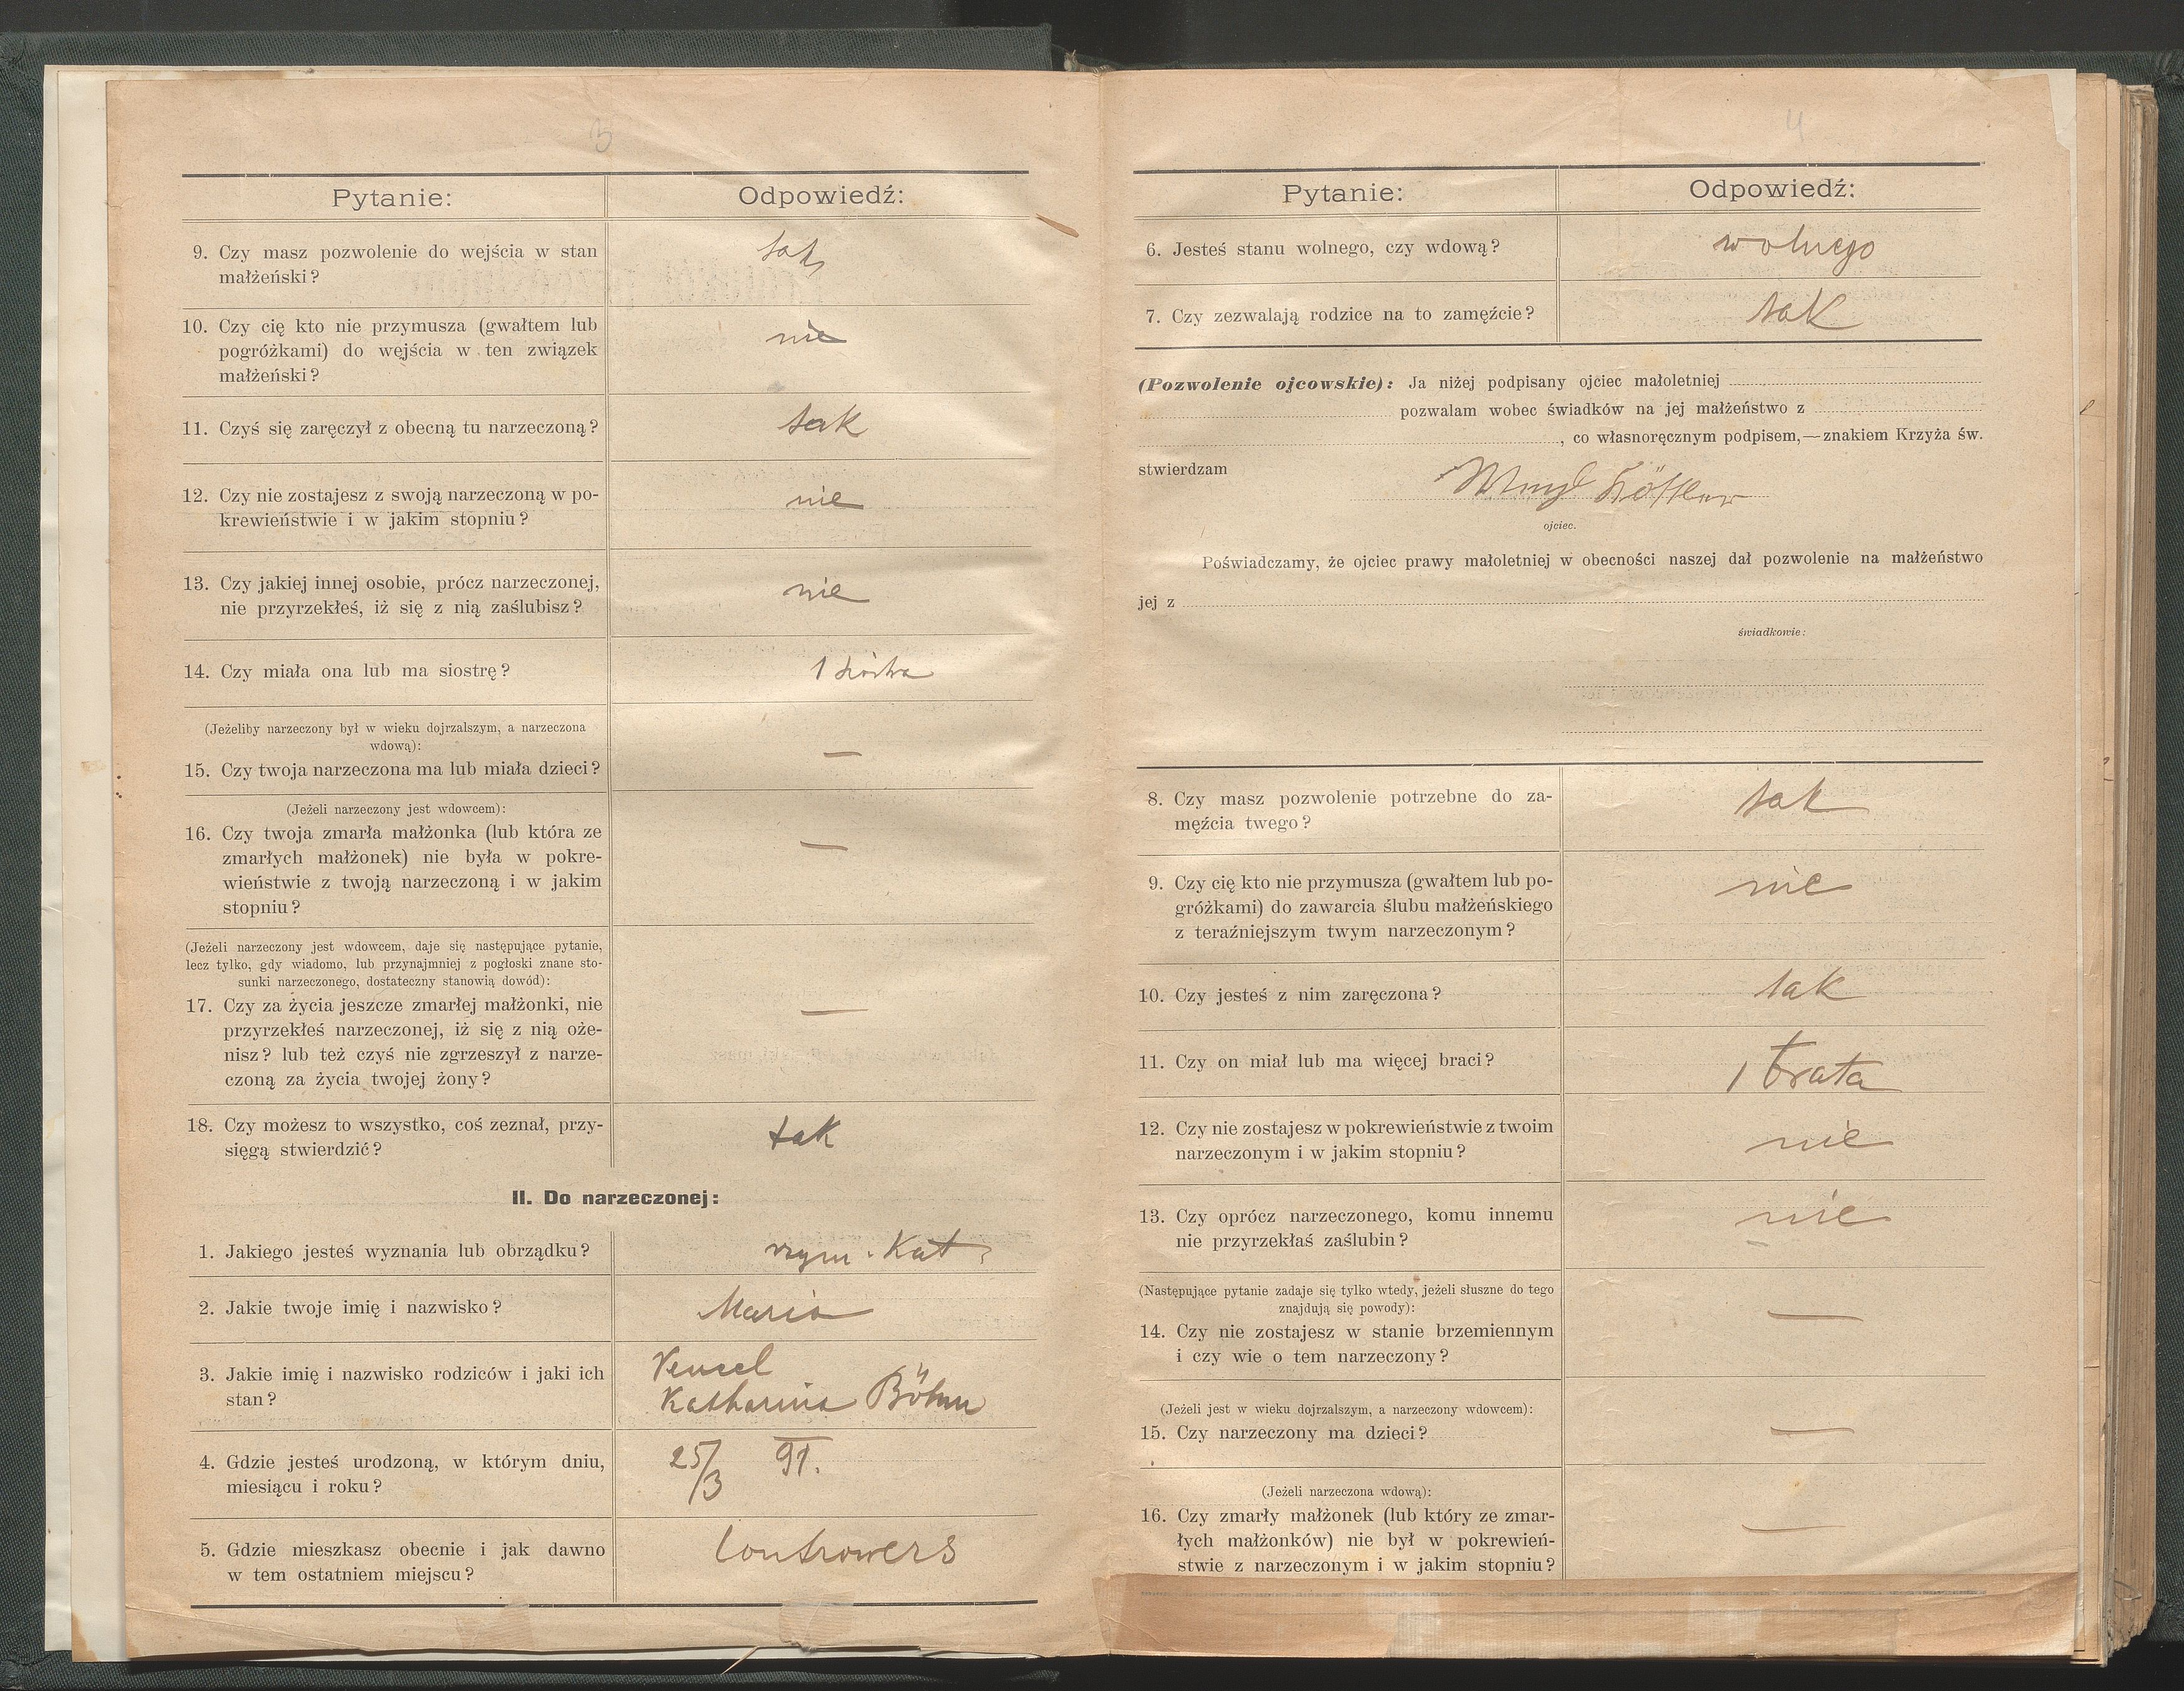 3
Pytanie: Odpowiedź:
9. Czy masz pozwolenie do wejścia w stan
małżeński?
tak
10. Czy cię kto nie przymusza (gwałtem lub
pogróżkami) do wejścia w ten związek
małżeński?
nie
11. Czyś się zaręczył z obecną tu narzeczoną?
tak
12. Czy nie zostajesz z swoją narzeczoną w po-
krewieństwie i w jakim stopniu?
nie
13. Czy jakiej innej osobie, prócz narzeczonej,
nie przyrzekłeś, iż się z nią zaślubisz?
nie
14. Czy miała ona lub ma siostrę?
1 siostra
(Jeżeliby narzeczony był w wieku dojrzalszym, a narzeczona
wdową):
15. Czy twoja narzeczona ma lub miała dzieci?
—
(Jeżeli narzeczony jest wdowcem):
16. Czy twoja zmarła małżonka (lub która ze
zmarłych małżonek) nie była w pokre-
wieństwie z twoją narzeczoną i w jakim
stopniu?
—
(Jeżeli narzeczony jest wdowcem, daje się następujące pytanie,
lecz tylko, gdy wiadomo, lub przynajmniej z pogłoski znane sto-
sunki narzeczonego, dostateczny stanowią dowód):
17. Czy za życia jeszcze zmarłej małżonki, nie
przyrzekłeś narzeczonej, iż się z nią oże-
nisz? lub też czyś nie zgrzeszył z narze-
czoną za życia twojej żony?
—
18. Czy możesz to wszystko, coś zeznał, przy-
sięgą stwierdzić?
tak
II. Do narzeczonej:
1. Jakiego jesteś wyznania lub obrządku?
rzym. Kat.
2. Jakie twoje imię i nazwisko?
Maria
3. Jakie imię i nazwisko rodziców i jaki ich
stan?
Vencel
Katharina Böhm
4. Gdzie jesteś urodzoną, w którym dniu,
miesiącu i roku?
25/3 91.
5. Gdzie mieszkasz obecnie i jak dawno
w tem ostatniem miejscu?
4
Pytanie: Odpowiedź:
6. Jesteś stanu wolnego, czy wdową?
wolnego
7. Czy zezwalają rodzice na to zamęźcie?
tak
(Pozwolenie ojcowskie): Ja niżej podpisany ojciec małoletniej
pozwalam wobec świadków na jej małżeństwo z
, co własnoręcznym podpisem,—znakiem Krzyża św.
stwierdzam
ojciec.
Poświadczamy, że ojciec prawy małoletniej w obecności naszej dał pozwolenie na małżeństwo
jej z
świadkowie:
8. Czy masz pozwolenie potrzebne do za-
męźcia twego?
tak
9. Czy cię kto nie przymusza (gwałtem lub po-
gróżkami) do zawarcia ślubu małżeńskiego
z teraźniejszym twym narzeczonym?
nie
10. Czy jesteś z nim zaręczona?
tak
11. Czy on miał lub ma więcej braci?
1 brata
12. Czy nie zostajesz w pokrewieństwie z twoim
narzeczonym i w jakim stopniu?
nie
13. Czy oprócz narzeczonego, komu innemu
nie przyrzekłaś zaślubin?
nie
(Następujące pytanie zadaje się tylko wtedy, jeżeli słuszne do tego
znajdują się powody):
14. Czy nie zostajesz w stanie brzemiennym
i czy wie o tem narzeczony?
—
(Jeżeli jest w wieku dojrzalszym, a narzeczony wdowcem):
15. Czy narzeczony ma dzieci?
—
(Jeżeli narzeczona wdową):
16. Czy zmarły małżonek (lub który ze zmar-
łych małżonków) nie był w pokrewień-
stwie z narzeczonym i w jakim stopniu?
—